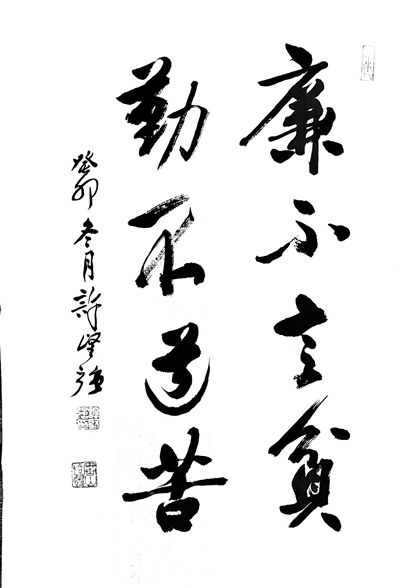 廉不言貧
勤不道苦
癸卯冬月許峰強